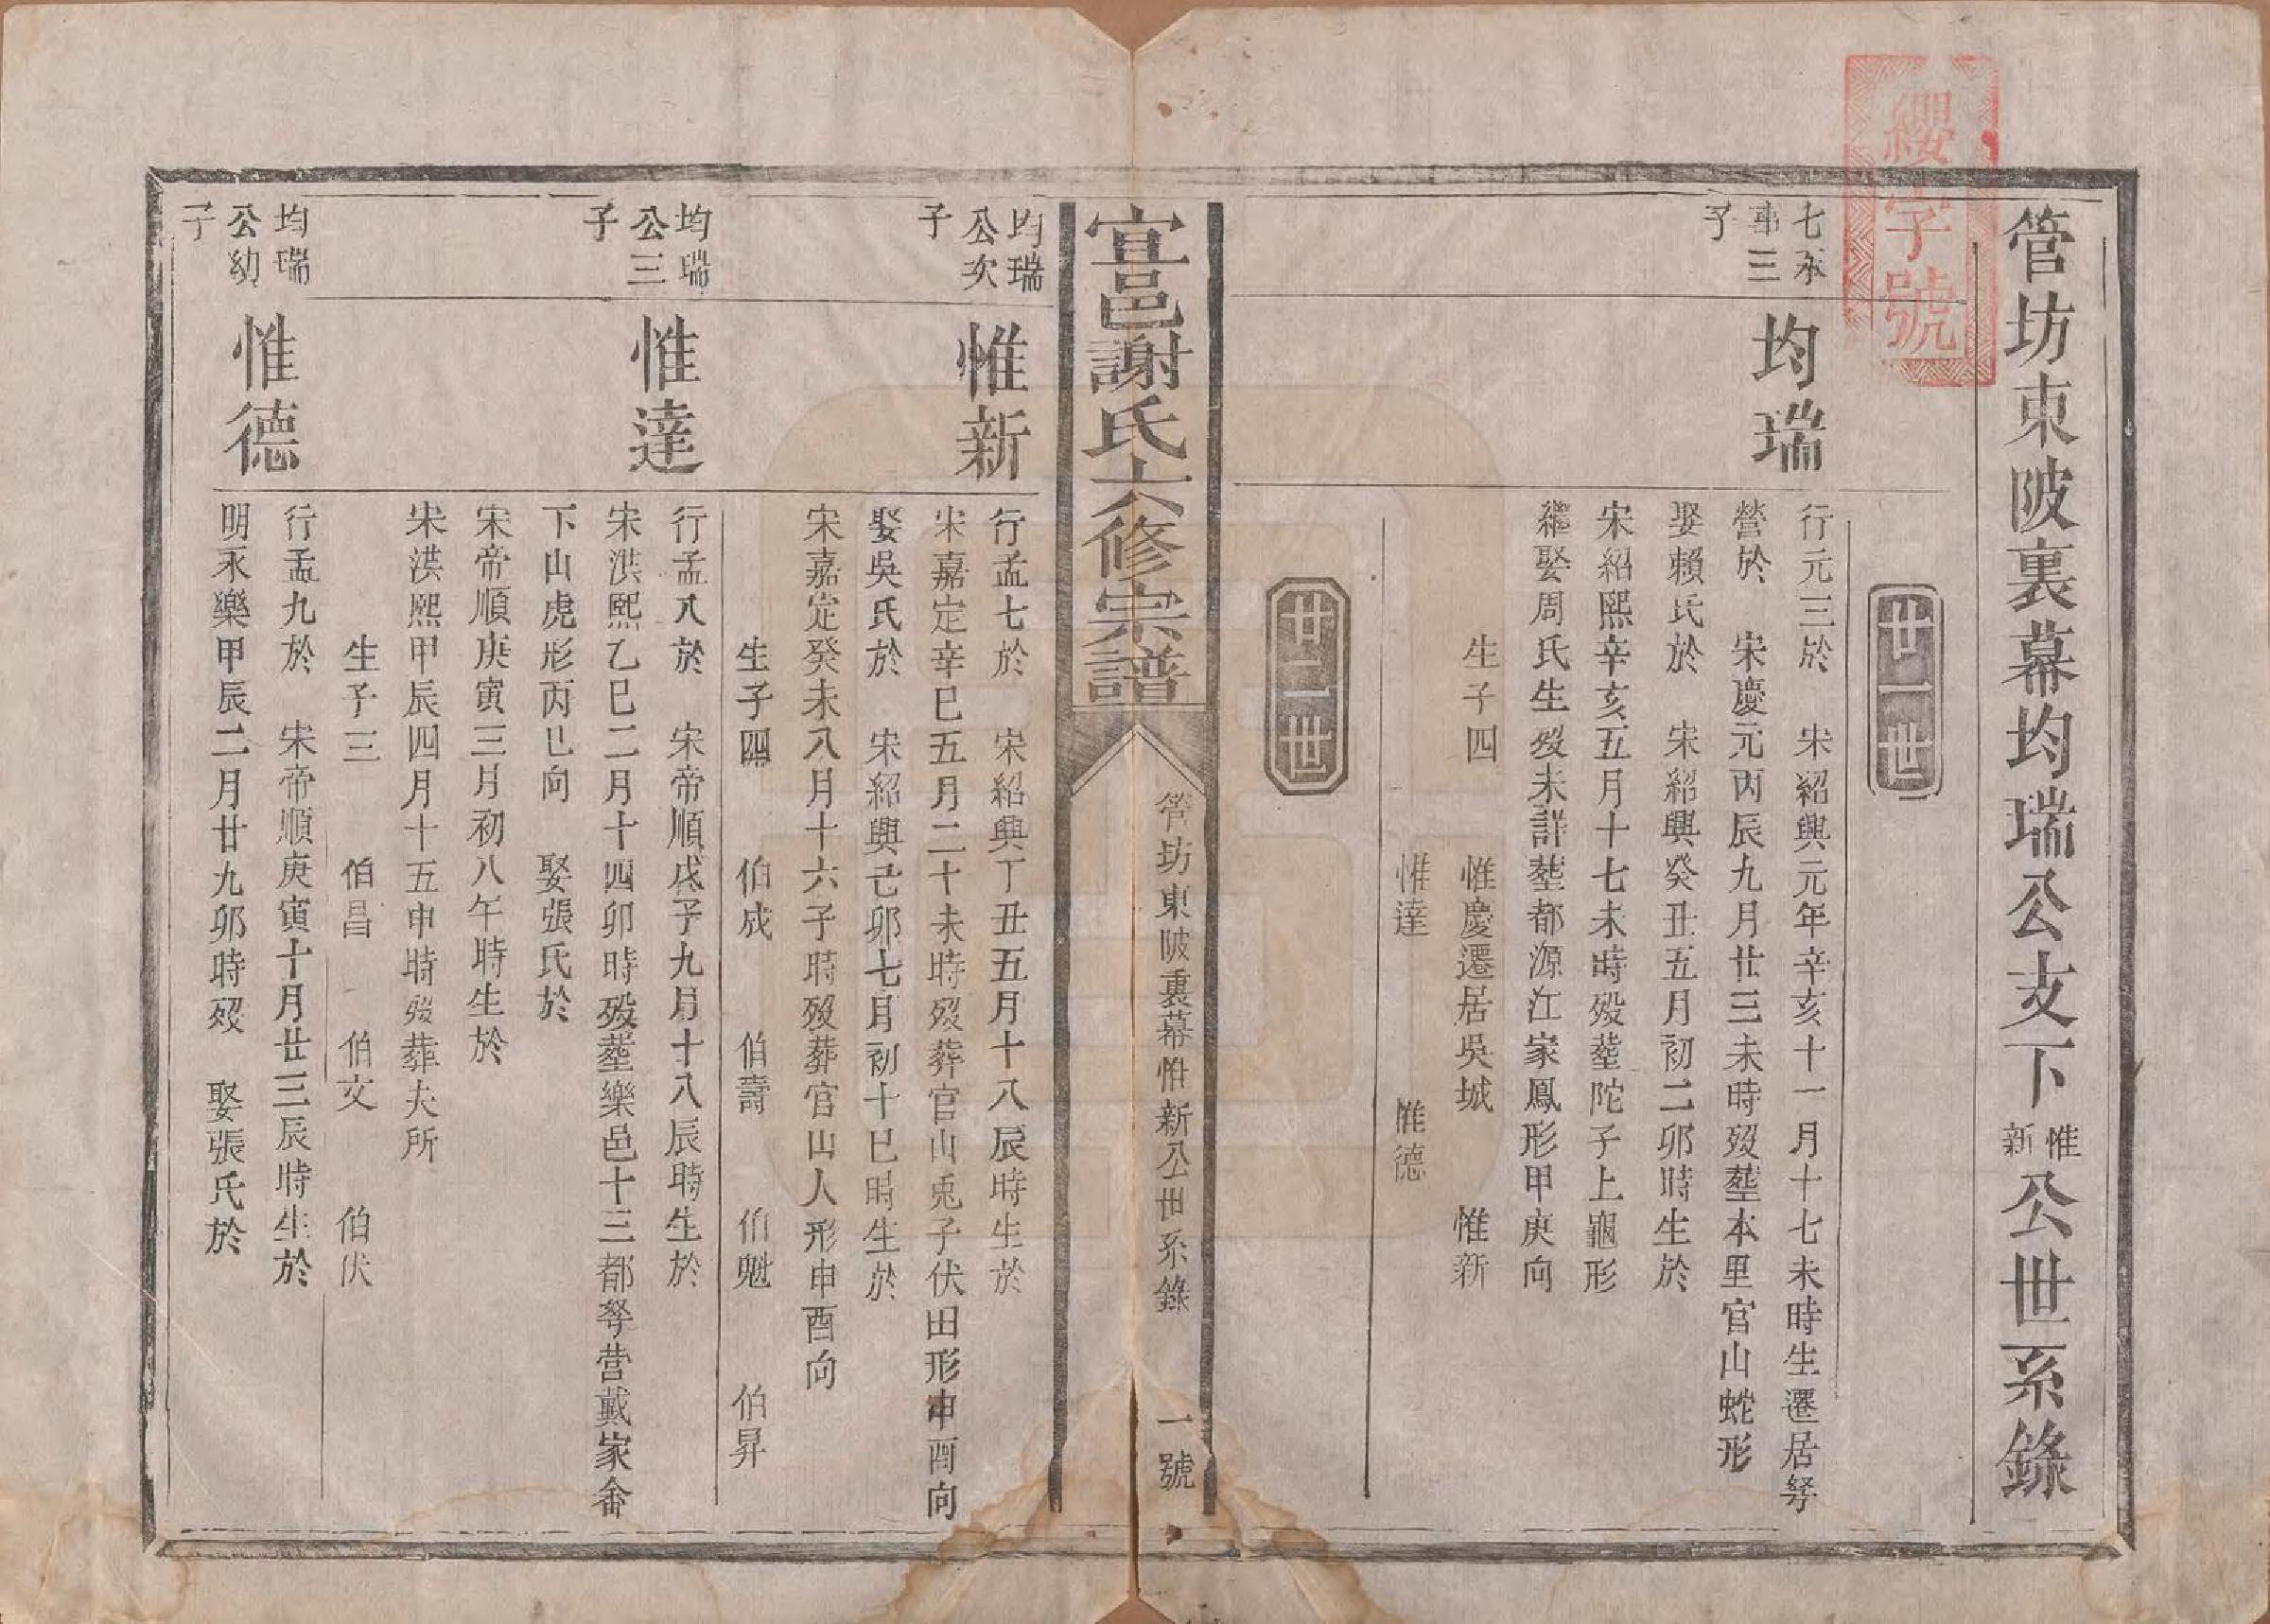 纓字號
管坊東陂裏幕均瑞公支下惟新公世系錄
廿一世
七承
事三
子
均瑞
行元三於 宋紹興元年辛亥十一月十七未時生遷居
營於 宋慶元丙辰九月廿三未時歿塟本里官山蛇形
娶賴氏於 宋紹興癸丑五月初二卯時生於
宋紹熙辛亥五月十七未時歿塟陀子上龜形
繼娶周氏生歿未詳塟都源江家鳳形甲庚向
生子四 惟慶遷居吳城 惟新
惟達 惟德
廿二世
宜邑謝氏六修宗譜
管坊東陂裏幕惟新公世系錄
一號
均瑞
公次
子
惟新
行孟七於 宋紹興丁丑五月十八辰時生於
宋嘉定辛巳五月二十未時歿葬官山兎子伏田形申酉向
娶吳氏於 宋紹興己卯七月初十巳時生於
宋嘉定癸未八月十六子時歿葬官山人形申酉向
生子四 伯成 伯壽 伯魁 伯昇
均瑞
公三
子
惟達
行孟八於 宋帝順戊子九月十八辰時生於
宋洪熙乙巳二月十四卯時歿塟樂邑十三都營戴家畲
下山虎形丙巳向 娶張氏於
宋帝順庚寅三月初八午時生於
宋洪熙甲辰四月十五申時歿葬夫所
生子三 伯昌 伯文 伯伏
均瑞
公幼
子
惟德
行孟九於 宋帝順庚寅十月廿三辰時生於
明永樂甲辰二月廿九卯時歿 娶張氏於